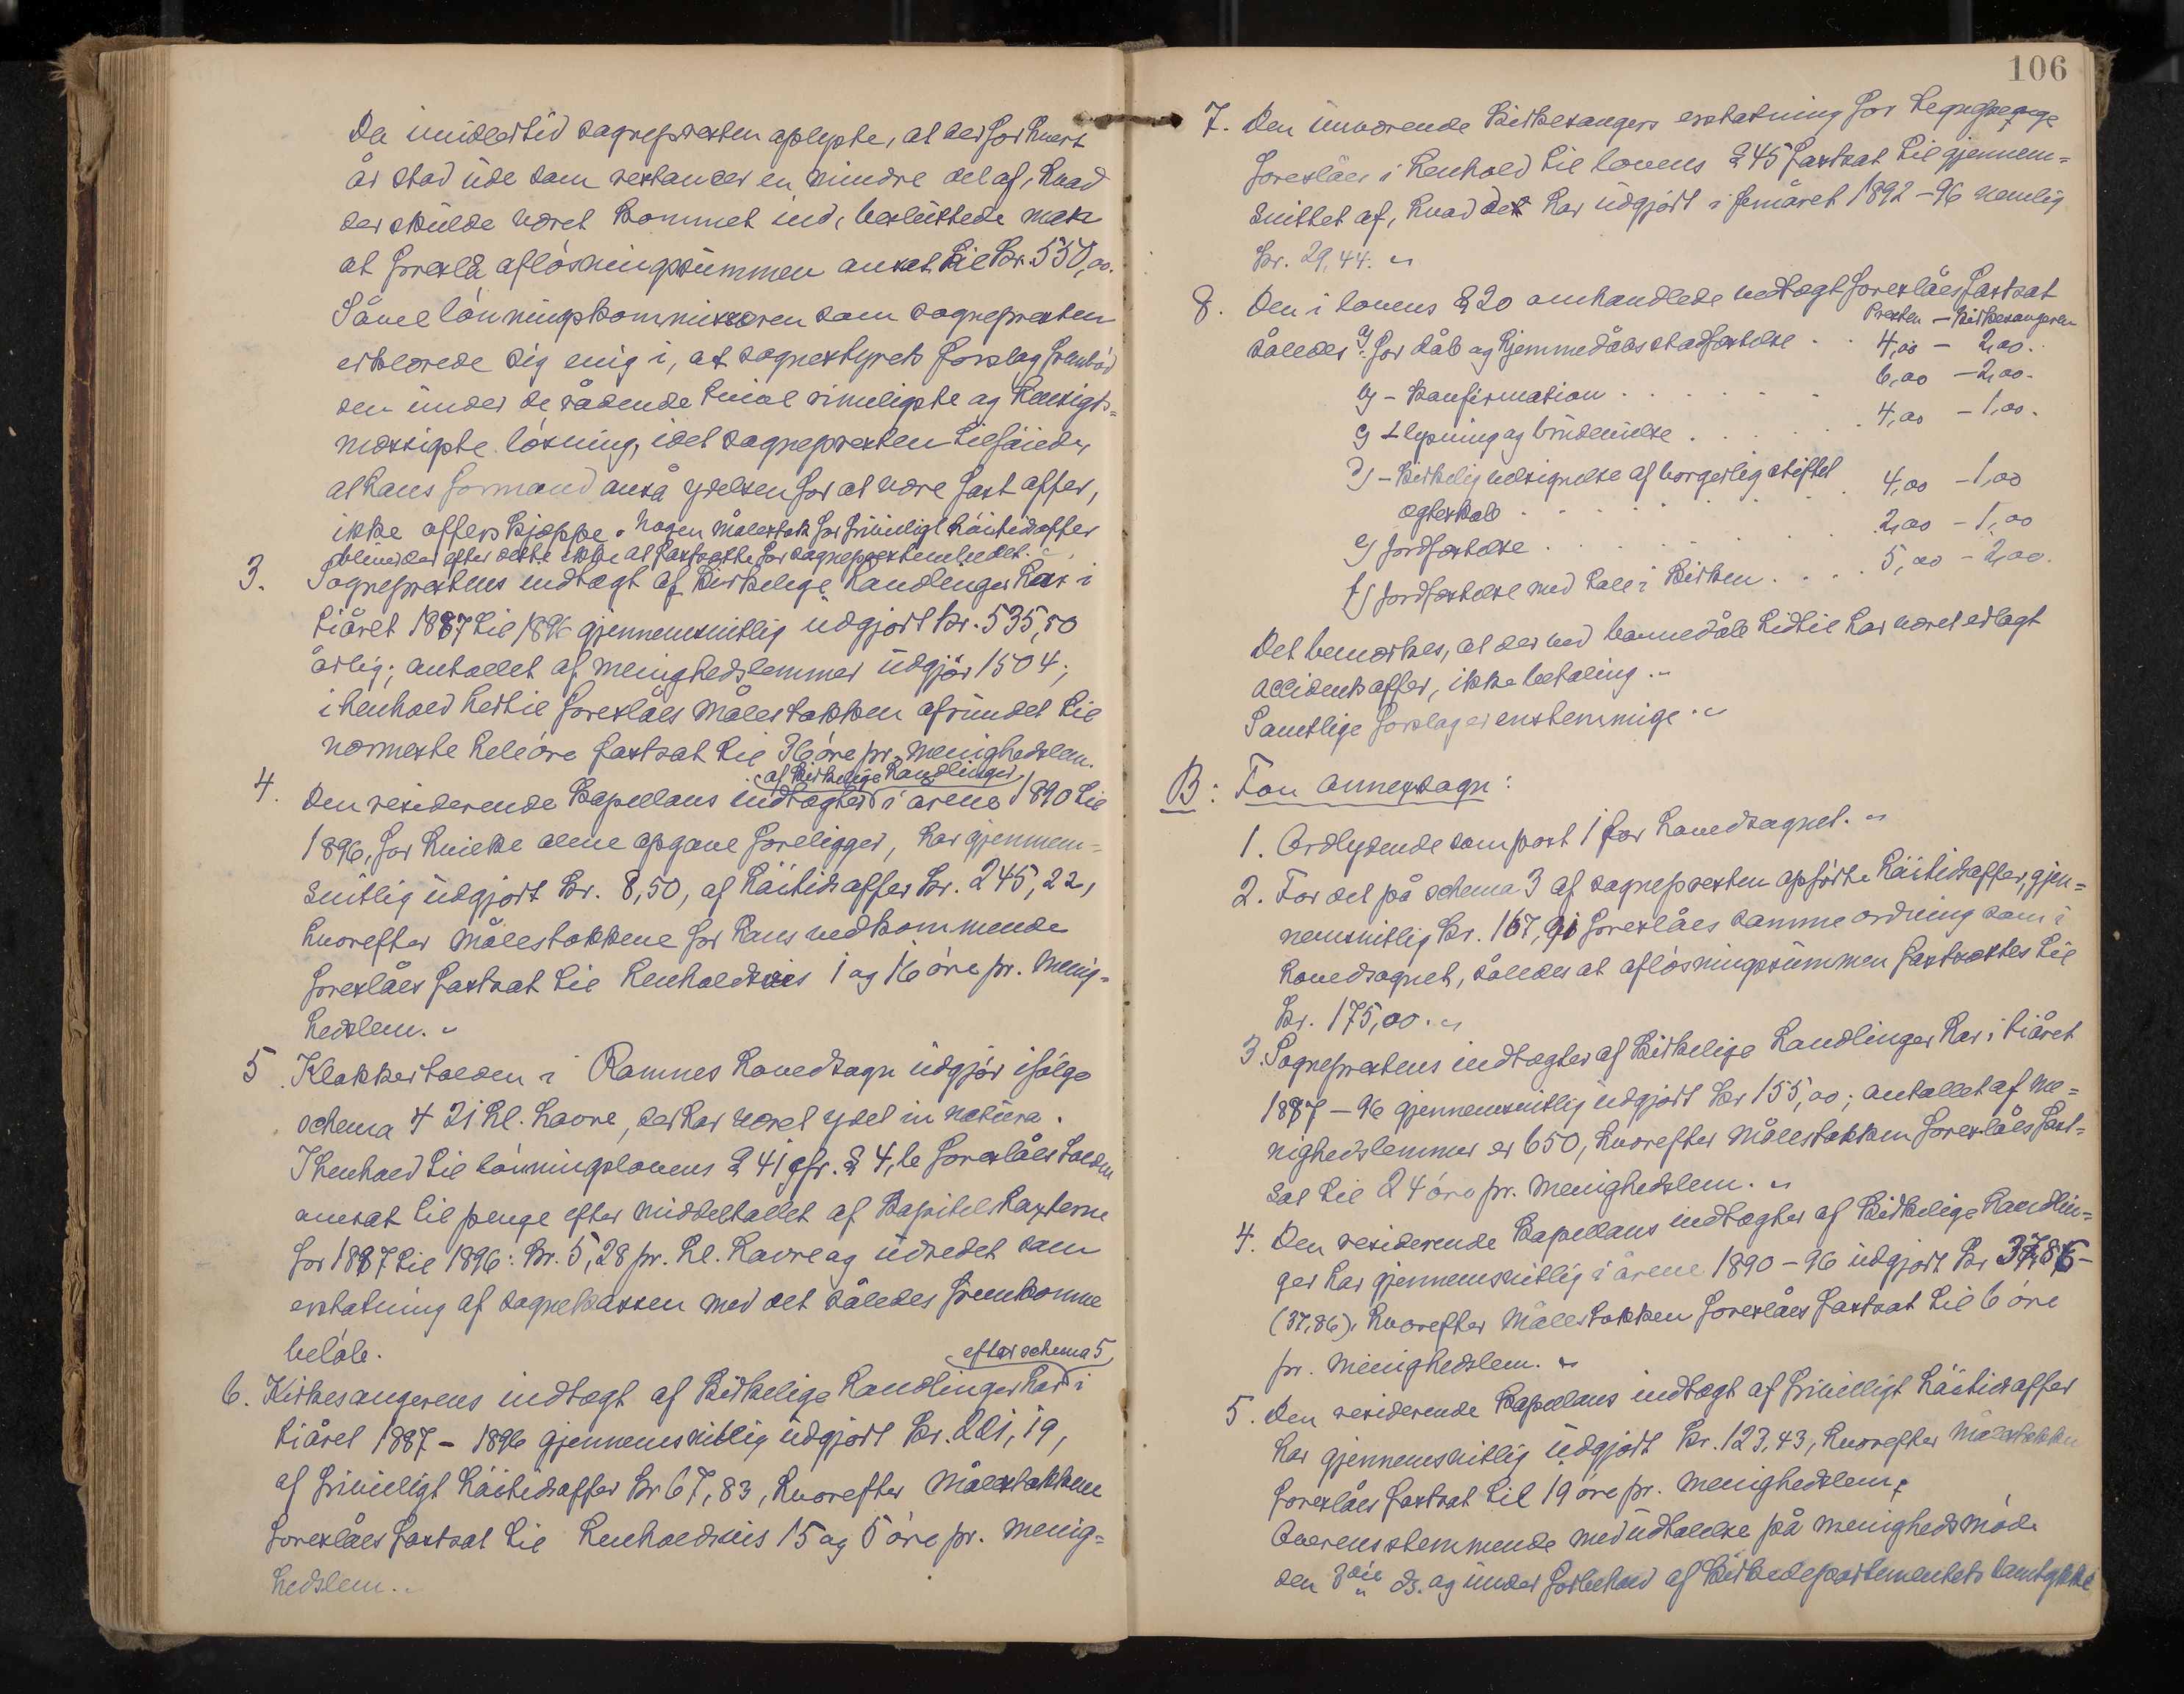 Da imidlertid sognepresten oplyste, at der for hvert
år stod ude som restancer en mindre del af, hvad
der skulde været kommet ind, besluttede man
at foreslå afløsningssummen ansat til kr. 550,00.
Såvel lønningskommissæren som sognepresten
erklærede sig enig i, at sognestyrets forslag frembød
den under de rådende tvivl rimeligste og hensigts=
mæssigste løsning, idet sognepresten tilføiede,
at hans formand anså ydelsen for at være fast offer,
ikke offerskjæppe. Nogen målestok for frivilligt høitidsoffer
blev der efter dette ikke at fastsætte for sogneprestembedet.
3. Sogneprestens indtægt af kirkelige handlinger har i
tiåret 1887 til 1896 gjennemsnitlig udgjort kr. 535,50
årlig; antallet af menighedslemmer udgjør 1504;
i henhold hertil foreslåes målestokken afrundet til
nærmeste hele øre fastsat til 36 øre pr. menighedslem.
af kirkelige handlinger
4. Den residerende kapellans indtægter i årene 1890 til
1896, for hvilke alene opgave foreligger, har gjennem=
snitlig udgjort kr. 8,50, af høitidsoffer kr. 245,22,
hvorefter målestokkene for hans vedkommende
foreslåes fastsat til henholdsvis 1 og 16 øre pr. menig=
hedslem.
5. Klokkertolden i Ramnes hovedsogn udgjør ifølge
schema 4 21 hl. havre, der har været ydet in natura.
I henhold til lønningslovens § 41 jfr. § 4, b foreslåes tolden
ansat til penge efter middeltallet af kapitelstaxterne
for 1887 til 1896: kr. 5,28 pr. hl. havre og udredet som
erstatning af sognekassen med det således fremkomne
beløb.
efter schema 5
6. Kirkesangerens indtægt af kirkelige handlinger har i
tiåret 1887 - 1896 gjennemsnitlig udgjort kr. 221,19,
af frivilligt høitidsoffer kr 67,83, hvorefter målestokkene
foreslåes fastsat til henholdsvis 15 og 5 øre pr. menig=
hedslem.
106
7. Den nuværende kirkesangers erstatning for
foreslåes i henhold til lovens § 45 fastsat til gjennem=
snittet af, hvad det har udgjort i femåret 1892-96 nemlig
kr. 29,44.
8. Den i lovens § 20 omhandlede indtægt foreslåes fastsat
Presten - Kirkesangeren
således a) for dåb og hjemmedåbs stadfæstelse . . 4,00 - 2,00.
b) - Konfirmation . . . . . . 6,00 - 2,00.
c) - lysning og brudevielse . . . . . . 4,00 - 1,00.
d) - Kirkelig velsignelse af borgerlig stiftet
ægteskab . . . . . . 4,00 - 1,00
e) jordfæstelse . . . . . . 2,00 - 1,00
f) jordfæstelse med tale i kirken . . . . 5,00 - 2,00.
Det bemærkes, at der ved barnedåb hidtil har været erlagt
accidentsoffer, ikke betaling.
Samtlige forslag er enstemmige.
B: For annexsogn:
1. Ordlydende som post 1 for hovedsognet.
2. For det på schema 3 af sognepresten opførte høitidsoffer, gjen=
nemsnitlig kr. 167,91 foreslåes samme ordning som i
hovedsognet, således at afløsningssummen fastsættes til
kr. 175,00.
3. Sogneprestens indtægter af kirkelige handlinger har i tiåret
1887 - 96 gjennemsnitlig udgjort kr 155,00; antallet af me=
nighedslemmer er 650, hvorefter målestokken foreslåes fast=
sat til 24 øre pr. menighedslem.
4. Den residerende kapellans indtægter af kirkelige handlin=
ger har gjennemsnitlig i årene 1890 - 96 udgjort kr 37,86 -
(37,86), hvorefter målestokken foreslåes fastsat til 6 øre
pr. menighedslem.
5. Den residerende kapellans indtægt af frivilligt høitidsoffer
har gjennemsnitlig udgjort kr. 123,43, hvorefter målestokken
foreslåes fastsat til 19 øre pr. menighedslem;
Overensstemmende med udtalelse på menighedsmøde
den ds. og under forbehold af kirkedepartementets samtykke